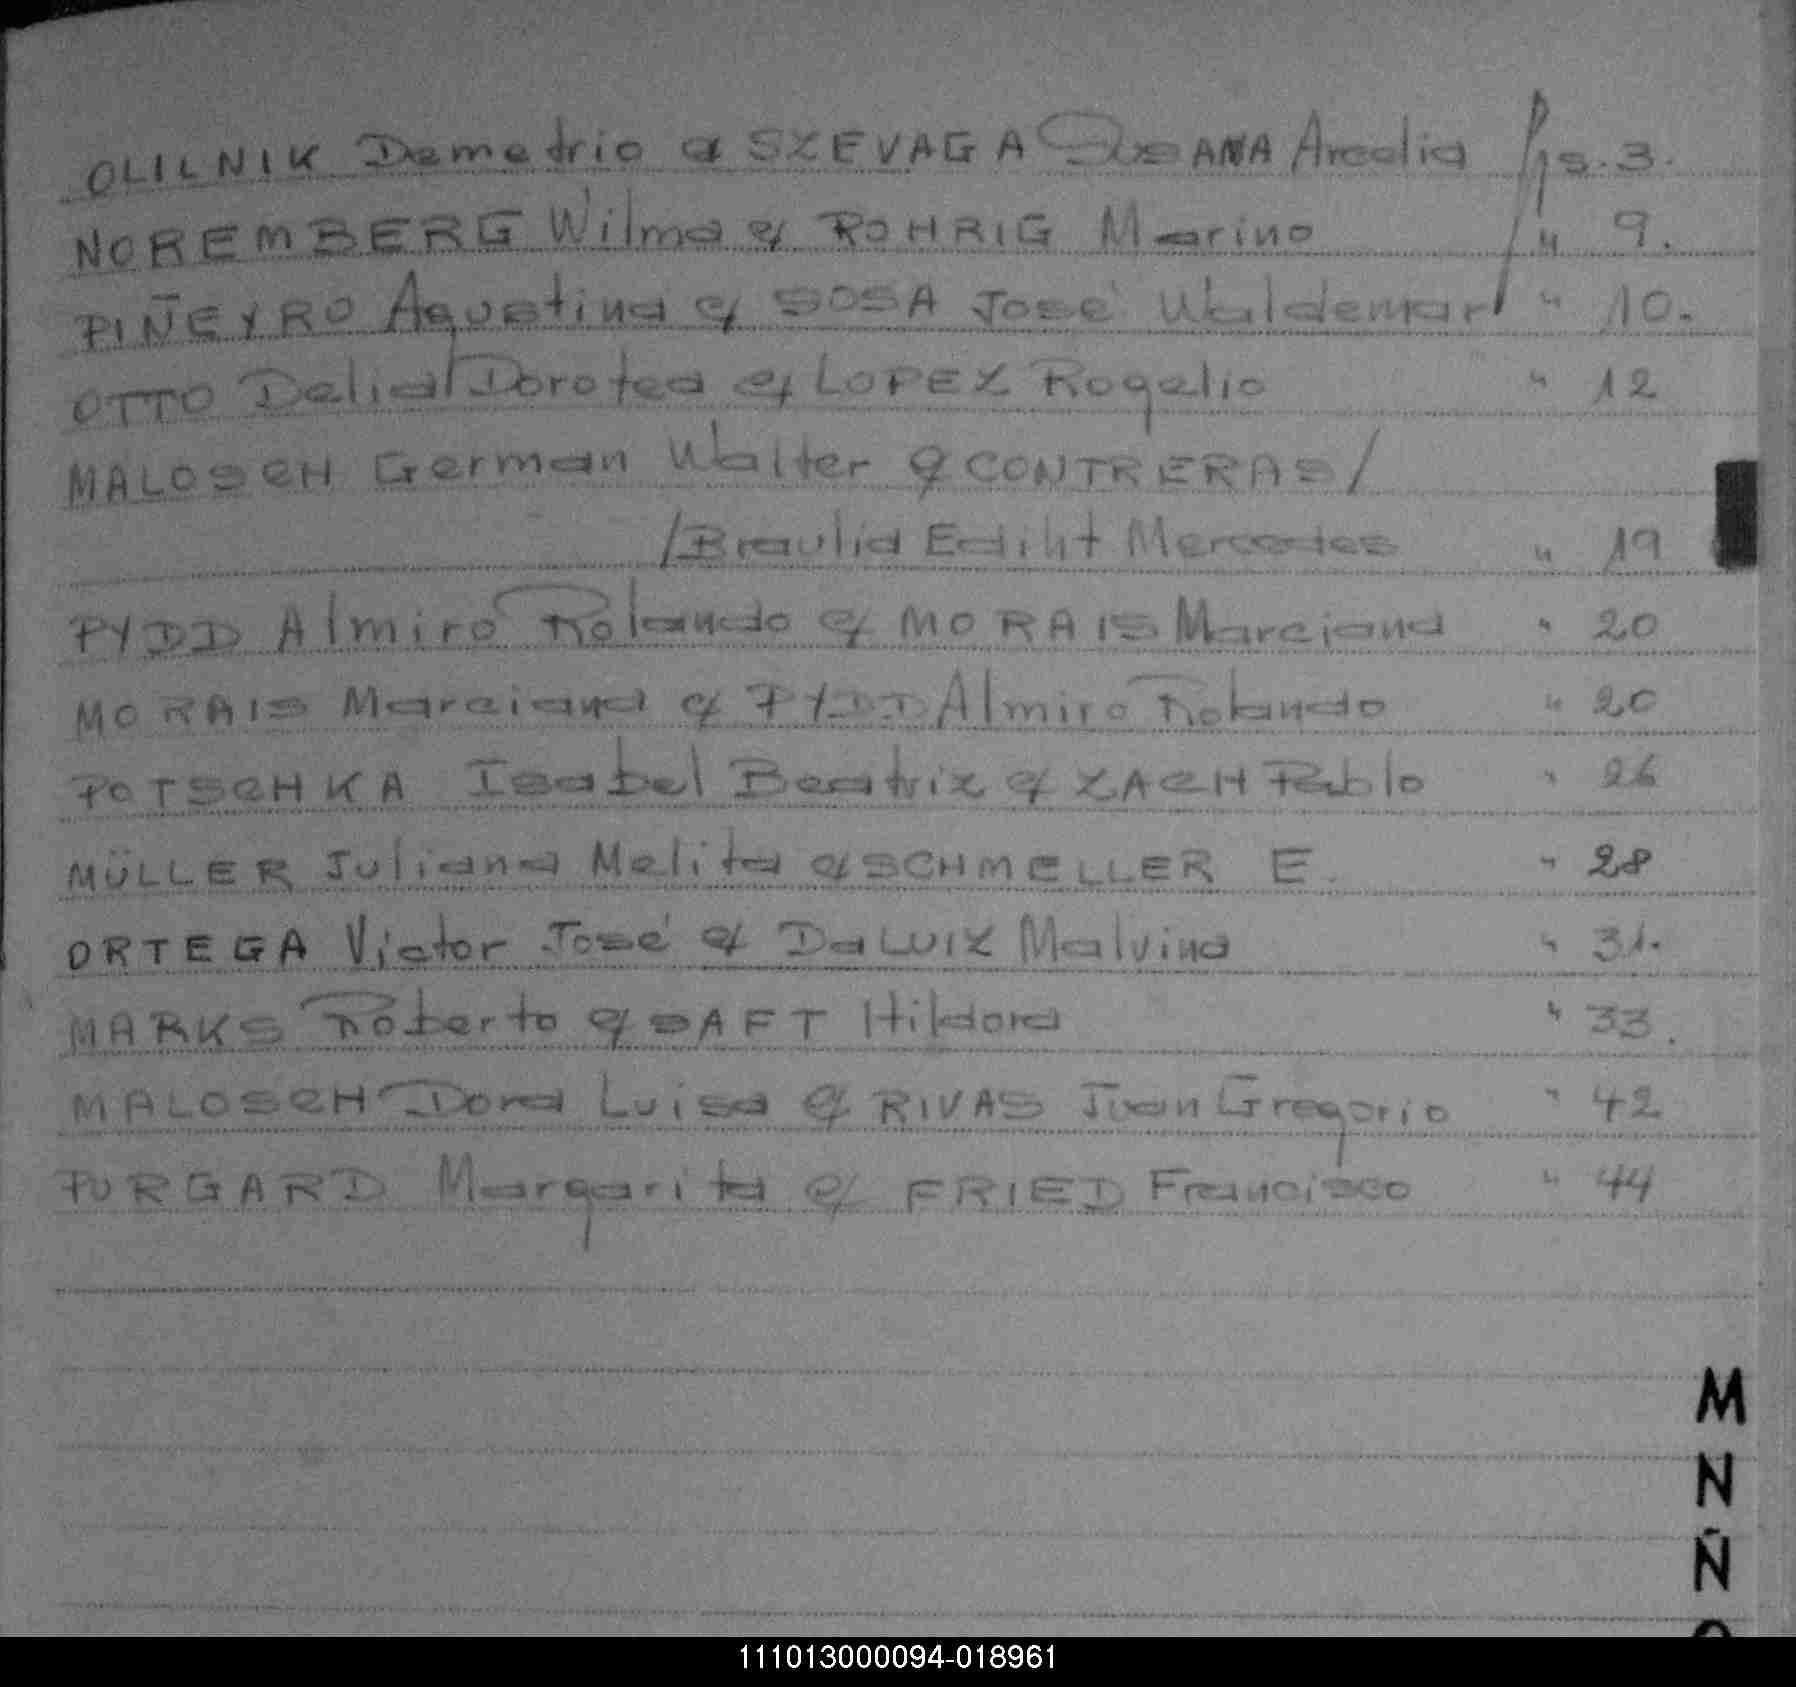 OLILNIK Demetrio c/ SZEVAGA SusANA Arcelia fjs. 3.
NOREMBERG Wilma c/ ROHRIG Marino " 9.
PIÑEYRO Agustina c/ SOSA José Waldemar " 10.
OTTO Delia Dorotea c/ LOPEZ Rogelio " 12
MALOSCH German Walter c/ CONTRERAS/
/Braulia Ediht Mercedes " 19
PYDD Almiro Rolando c/ MORAIS Marciana " 20
MORAIS Marciana c/ PYDD Almiro Rolando " 20
POTSCHKA Isabel Beatriz c/ ZACH Pablo " 26
MÜLLER Juliana Melita c/ SCHMELLER E. " 28
ORTEGA Victor José c/ DaLUIZ Malvina " 31.
MARKS Roberto c/ SAFT Hildora " 33.
MALOSCH Dora Luisa c/ RIVAS Juan Gregorio " 42
PURGARD Margarita c/ FRIED Francisco " 44
M
N
Ñ
111013000094-018961